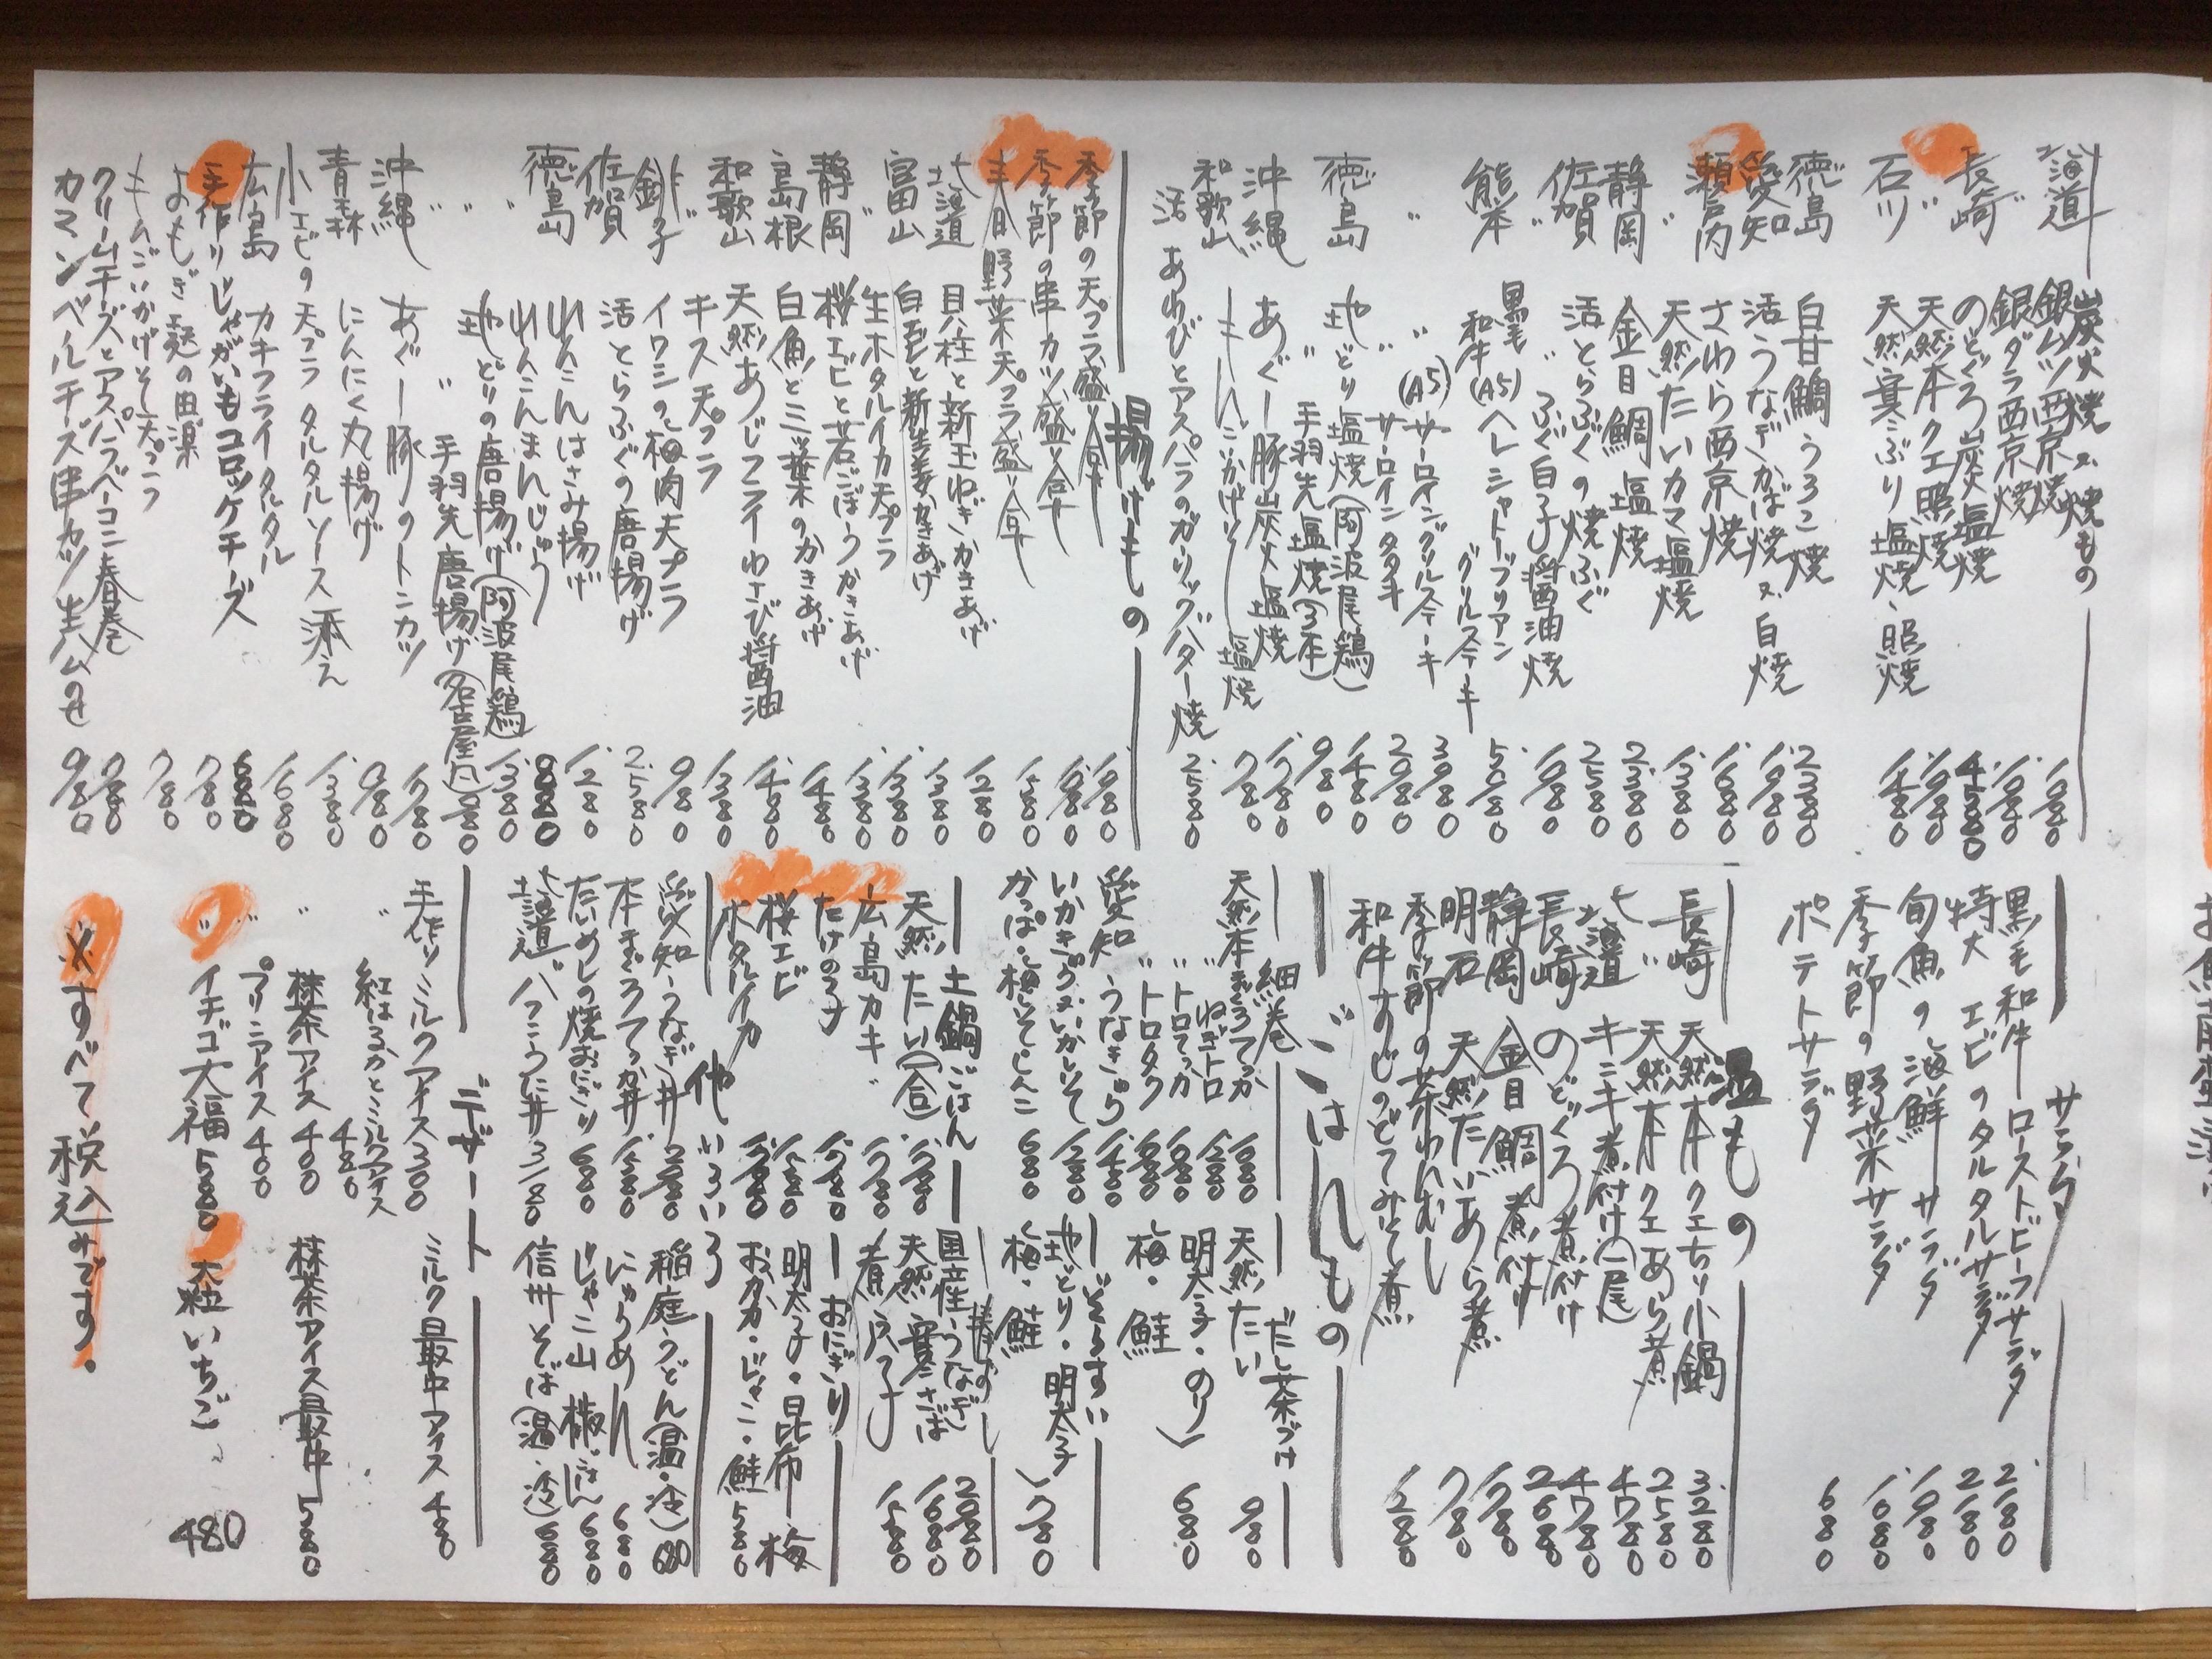 炭火焼又焼もの
北海道 銀ムツ西京焼 1.980
〃 銀ダラ西京焼 1.980
長崎 のどぐろ炭火塩焼 4.380
〃 天然本クエ照焼 1.980
石川 天然寒ぶり塩焼、照焼 1.480
徳島 白甘鯛うろこ焼 2.380
愛知 活うなぎかば焼又白焼
瀬戸内 さわら西京焼 1.680
〃 天然たいカマ塩焼 1.380
静岡 金目鯛塩焼 2.380
佐賀 活とらふぐの焼ふぐ 2.580
〃 〃 ふぐ白子醤油焼 1.980
熊本 黒毛和牛(A5)ヘレシャトーブリアングリルステーキ 5.980
〃 〃 (A5)サーロイングリルステーキ 3.980
〃 サーロインタタキ 2.980
徳島 地どり塩焼(阿波尾鶏) 1.480
〃 手羽先塩焼(3本) 980
沖縄 あぐー豚炭火塩焼 1.780
和歌山 もんごいかげそ塩焼 780
活あわびとアスパラのガーリックバター焼 2.580
揚げもの
季節の天プラ盛り合せ 1.980
季節の串カツ盛り合せ 1.980
春野菜天プラ盛り合せ 1.580
北海道 貝柱と新玉ねぎかきあげ 1.280
富山 白えびと新生姜かきあげ 1.380
〃 生ホタルイカ天プラ 1.380
静岡 桜エビと若ごぼうかきあげ 1.380
島根 白魚と三ッ葉のかきあげ 1.480
和歌山 天然あじフライわさび醤油 1.480
〃 キス天プラ 1.380
銚子 イワシの梅肉天プラ 980
佐賀 活とらふぐの唐揚げ 2.580
徳島 れんこんはさみ揚げ 1.280
〃 れんこんまんじゅう 980
〃 地どりの唐揚げ(阿波尾鶏) 1.380
〃 〃 手羽先唐揚げ(名古屋風) 880
沖縄 あぐー豚のトンカツ 1.780
青森 にんにく丸揚げ 980
小エビの天プラタルタルソース添え 1.380
広島 カキフライタルタル 1.680
手作りじゃがいもコロッケチーズ 680
よもぎ麩の田楽 780
もんごいかげそ天プラ 780
クリームチーズとアスパラベーコン春巻 980
カマンベールチーズ串カツ生ハムのせ 980
サラダ
黒毛和牛ローストビーフサラダ 2.180
特大エビのタルタルサラダ 2.180
旬魚の海鮮サラダ 1.980
季節の野菜サラダ 1.680
ポテトサラダ 680
温もの
長崎 天然本クエちり小鍋 3.280
〃 天然本クエあら煮 2.580
北海道 キンキ煮付け(一尾) 4.780
長崎 のどぐろ煮付け 4.780
静岡 金目鯛煮付け 2.680
明石 天然たいあら煮 1.780
季節の茶わんむし 780
和牛すじのどてみそ煮 1.280
ごはんもの
細巻
天然本まぐろてっか 1.680
〃 ねぎトロ 1.280
〃 トロてっか 1.680
〃 トロタク 1.680
愛知 うなきゅう 1.480
いかきゅう又いかしそ 1.280
かっぱ・梅しそ・しんこ 680
だし茶づけ
天然たい 980
明太子・のり
梅・鮭 680
ぞうすい
地どり・明太子
梅・鮭 780
土鍋ごはん
天然たい(一合) 1.780
広島カキ 1.780
たけの子 1.780
桜エビ 1.580
ホタルイカ 1.780
棒ずし
国産うなぎ 2.980
天然寒さば 1.680
煮穴子 1.580
おにぎり
明太子・昆布・梅
おかか・じゃこ・鮭 580
他いろいろ
愛知うなぎ丼 2.980
本まぐろてっか丼 1.580
たいめしの焼おにぎり 680
北海道バフンうに丼 3.180
稲庭うどん(温・冷) 680
にゅうめん 680
じゃこ山椒ごはん 680
信州そば(温・冷) 680
デザート
手作りミルクアイス 300
〃 紅はるかとミルクアイス 480
〃 抹茶アイス 400
〃 プリンアイス 400
〃 イチゴ大福 580
ミルク最中アイス 480
抹茶アイス最中 580
大粒いちご 480
※すべて税込みです。